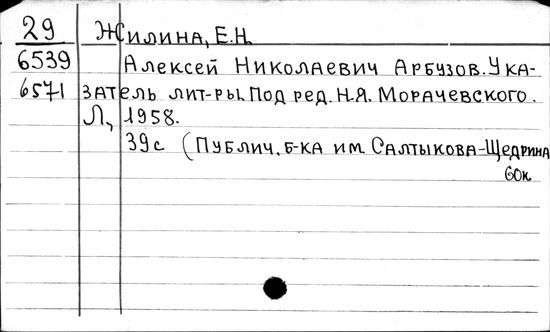 29 Жилина, Е.Н.
6539 Алексей Николаевич Арбузов. Ука-
6571 затель лит-ры. Под ред. Н.Я. Морачевского.
Л., 1958.
39с (Публич. б-ка им. Салтыкова-Щедрина
60к